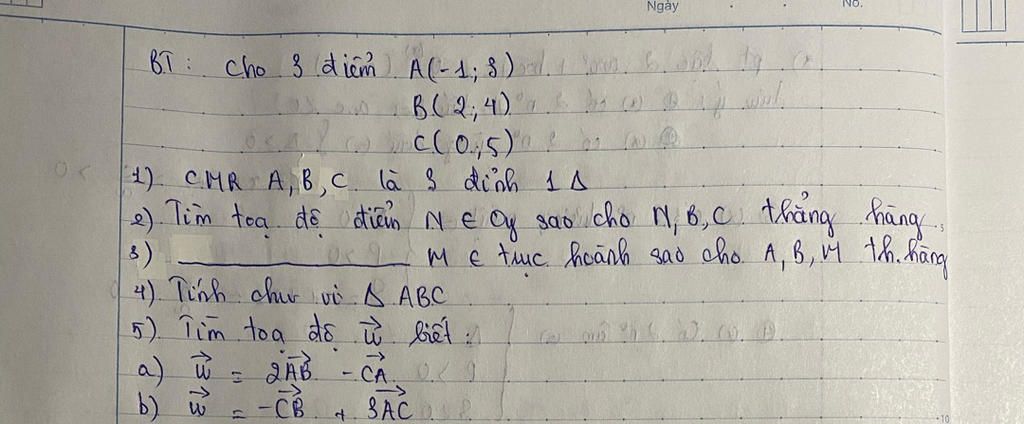 Ngày No.
BT: Cho 3 điểm A(-1; 3)
B(2; 4)
C(0; 5)
1) CMR A, B, C là 3 đỉnh 1 Δ
2) Tìm toạ độ điểm N ∈ Oy sao cho N, B, C thẳng hàng.
3) ____________ M ∈ trục hoành sao cho A, B, M th.hàng
4) Tính chu vi Δ ABC
5) Tìm toạ độ w⃗ biết:
a) w⃗ = 2AB⃗ - CA⃗
b) w⃗ = -CB⃗ + 3AC⃗
10